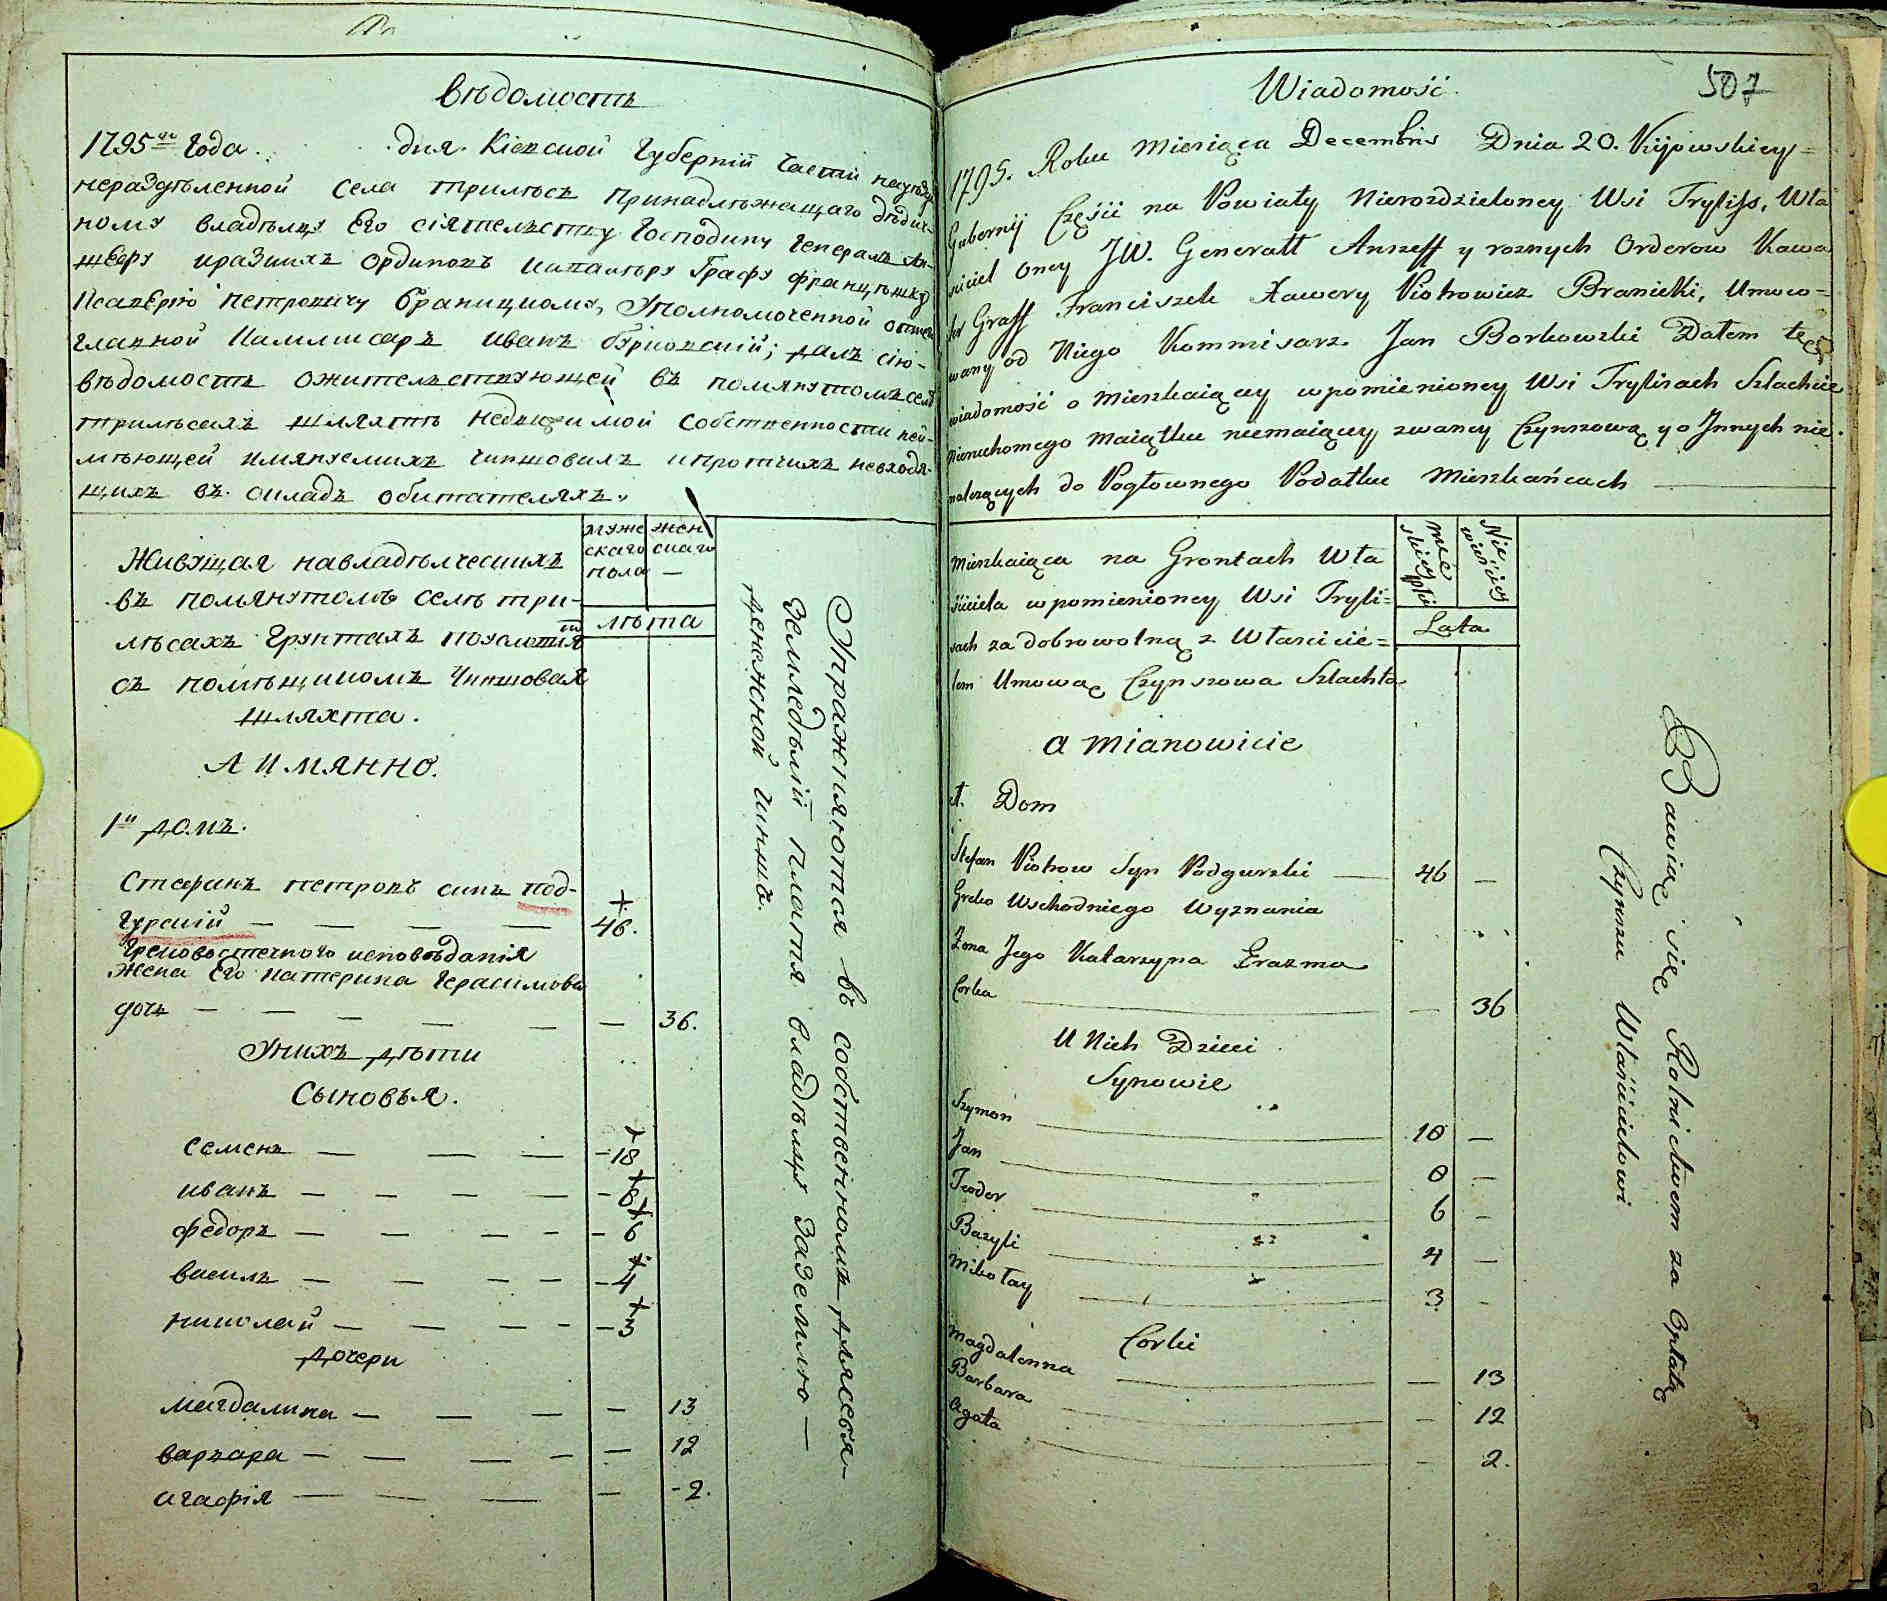 Вѣдомость
1795го Года дня Кіевской Губерніи Части науѣзды
нераздѣленной Села Трилѣсъ принадлѣжащаго дѣдич-
ному владѣлцу Его Сіятелству Господину Генералъ Ан-
шефу иразнихъ Ординовъ Кавалѣру Графу Францѣшку
Ксаверію Петровичу Браницкому, Уполномоченной отнего
главной Каммисаръ Иванъ Бурковский; далъ сію-
вѣдомость ожителствующей въ помянутомъ селѣ
трилѣсахъ шляхтѣ недвижимой собственности неи-
мѣющей имянуемихъ чиншовихъ ипротчихъ невходя-
щихъ въ окладъ обитателяхъ.
Муже
скаго
пола
жен
скаго
—
лѣта
Живущая навладѣлческихъ
въ помянутомъ селѣ три-
лѣсахъ Грунтахъ поусловія
съ помѣщикомъ Чиншовая
шляхта.
А имянно.
1й домъ.
Стефанъ Петровъ синъ Под-
гурский — — — — 46.
Грековосточного исповѣданія
жена Его Катерина Герасимова
дочь — — — — — — 36.
Унихъ дѣти
Сыновья.
Семенъ — — — -18
иванъ — — — — -8
федоръ — — — — -6
василь — — — — -4
николай — — — — -3
дочери
магдалина — — — — 13
варвара — — — — — 12
агафія — — — — -2.
Упражняются въ собственномъ длясебя-
Земледѣлій платя владѣлцу Заземлю —
денежной чиншъ.
507
Wiadomość
1795. Roku Miesiąca Decembris Dnia 20. Kijowskiey=
Gubernij Częśći na Powiaty Nierozdzieloney Wsi Tryliss, Wła
śiciel oney JW. Generałł Anszeff y roznych Orderow Kawa
ler Graff Franciszek Xawery Piotrowicz Branicki, Umoco=
wany od Niego Kommisarz Jan Borkowski Dałem tę
wiadomość o Mieszkaiącey wpomienioney Wsi Trylisach Szlachcie
Nieruchomego Maiątku niemaiącey zwaney Czynszową y o Jnnych nie
nalezących do Pogłownego Podatku Mieszkańcach —
Męs
skiey płci
Nie
wieściey
Lata
Mieszkaiąca na Grontach Wła
śiciela wpomienioney Wsi Tryli=
sach za dobrowolną z Właścicie=
lem Umową Czynszowa Szlachta
a Mianowicie
1. Dom
Stefan Piotrow Syn Podgurski — 46 —
Greko Wschodniego Wyznania
Zona Jego Katarzyna Erazma
Corka — — 36
U Nich Dzieci
Synowie
Szymon — 18 —
Jan — 8 —
Teodor — 6 —
Bazyli — 4 —
Mikołay — 3 —
Corki
Magdalenna — — 13
Barbara — — 12
Agata — — 2.
Bawiąc się Rolnictwem za Opłatą
Czynszu Właścicielowi